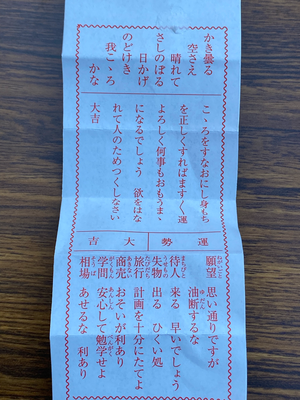 かき曇る
空さえ
晴れて
さしのぼる
日かげ
のどけき
我こゝろ
かな
こゝろをすなおにし身もち
を正しくすればますく運
よろしく何事もおもうまゝ
になるでしょう 欲をはな
れて人のためつくしなさい
大吉
運勢大吉
願望 思い通りですが
油断するな
待人 来る 早いでしょう
失物 出る ひくい処
旅行 計画を十分にたてよ
商売 おそいが利あり
学問 安心して勉学せよ
相場 あせるな 利あり